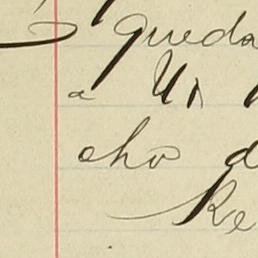 queda
a Un
cho d
Re